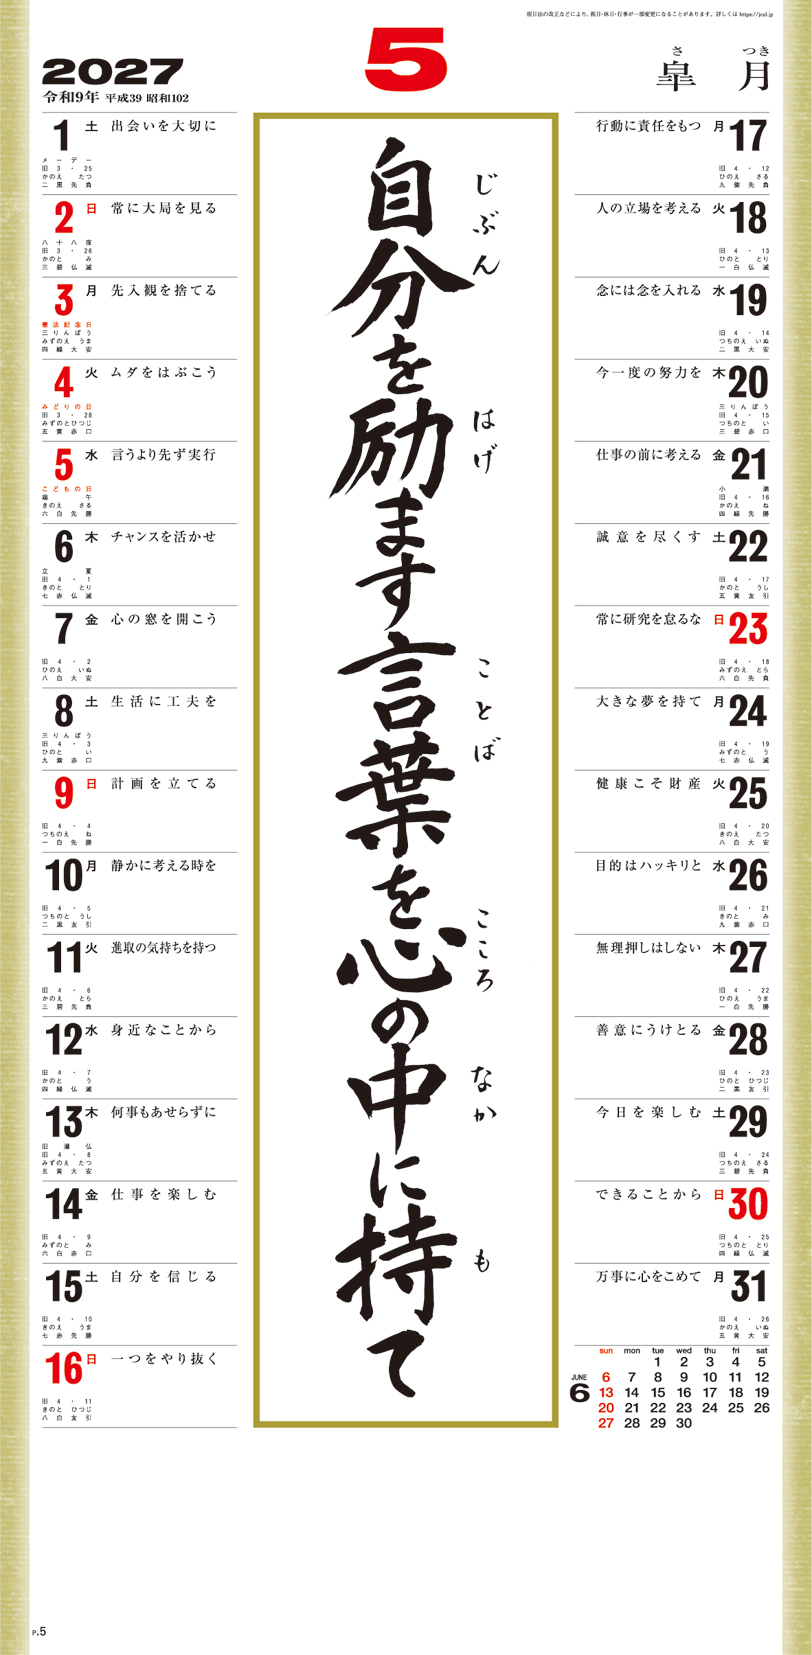 祝日法の改正などにより、祝日・休日・行事が一部変更になることがあります。詳しくは https://jcal.jp
2027
令和9年 平成39 昭和102
5
さ つき
皐月
自分を励ます言葉を心の中に持て
じぶん
はげ
ことば
こころ
なか
も
1 土 出会いを大切に
メーデー
旧3・25
かのえ たつ
二黒先負
2 日 常に大局を見る
八十八夜
旧3・26
かのと み
三碧仏滅
3 月 先入観を捨てる
憲法記念日
三りんぼう
みずのえ うま
四緑大安
4 火 ムダをはぶこう
みどりの日
旧3・28
みずのとひつじ
五黄赤口
5 水 言うより先ず実行
こどもの日
端午
きのえ さる
六白先勝
6 木 チャンスを活かせ
立夏
旧4・1
きのと とり
七赤仏滅
7 金 心の窓を開こう
旧4・2
ひのえ いぬ
八白大安
8 土 生活に工夫を
三りんぼう
旧4・3
ひのと い
九紫赤口
9 日 計画を立てる
旧4・4
つちのえ ね
一白先勝
10 月 静かに考える時を
旧4・5
つちのと うし
二黒友引
11 火 進取の気持ちを持つ
旧4・6
かのえ とら
三碧先負
12 水 身近なことから
旧4・7
かのと う
四緑仏滅
13 木 何事もあせらずに
旧灌仏
旧4・8
みずのえ たつ
五黄大安
14 金 仕事を楽しむ
旧4・9
みずのと み
六白赤口
15 土 自分を信じる
旧4・10
きのえ うま
七赤先勝
16 日 一つをやり抜く
旧4・11
きのと ひつじ
八白友引
行動に責任をもつ 月 17
旧4・12
ひのえ さる
九紫先負
人の立場を考える 火 18
旧4・13
ひのと とり
一白仏滅
念には念を入れる 水 19
旧4・14
つちのえ いぬ
二黒大安
今一度の努力を 木 20
三りんぼう
旧4・15
つちのと い
三碧赤口
仕事の前に考える 金 21
小満
旧4・16
かのえ ね
四緑先勝
誠意を尽くす 土 22
旧4・17
かのと うし
五黄友引
常に研究を怠るな 日 23
旧4・18
みずのえ とら
六白先負
大きな夢を持て 月 24
旧4・19
みずのと う
七赤仏滅
健康こそ財産 火 25
旧4・20
きのえ たつ
八白大安
目的はハッキリと 水 26
旧4・21
きのと み
九紫赤口
無理押しはしない 木 27
旧4・22
ひのえ うま
一白先負
善意にうけとる 金 28
旧4・23
ひのと ひつじ
二黒友引
今日を楽しむ 土 29
旧4・24
つちのえ さる
三碧先負
できることから 日 30
旧4・25
つちのと とり
四緑仏滅
万事に心をこめて 月 31
旧4・26
かのえ いぬ
五黄大安
JUNE
6
sun mon tue wed thu fri sat
1 2 3 4 5
6 7 8 9 10 11 12
13 14 15 16 17 18 19
20 21 22 23 24 25 26
27 28 29 30
P.5